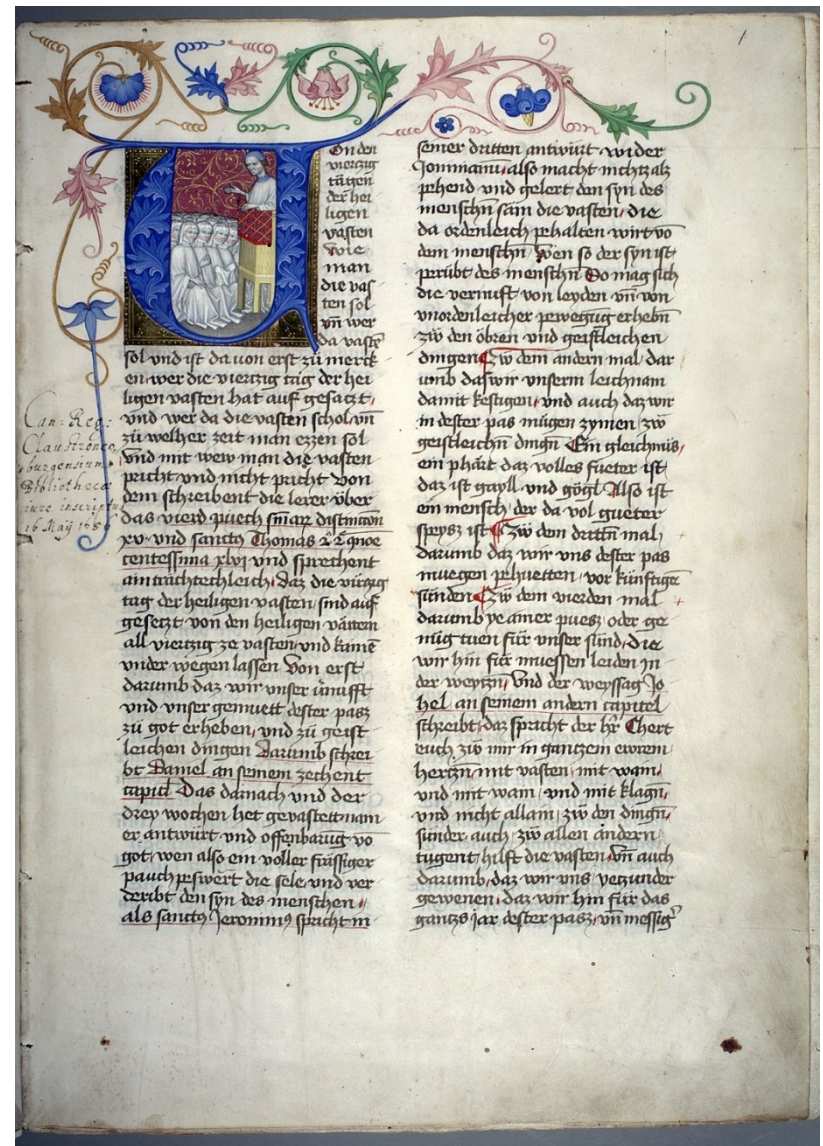 1
On den
vierczig
tägen
der hei
ligen
vasten
wie
man
die vas
ten sol
vn̄ wer
da vastñ
sol vnd ist da uon erst zü merck
en wer die vierczig täg der hei
ligen vasten hat auf gesaczt,
vnd wer da die vasten schol, vn̄
zü welher zeit man ezzen sol
vnd mit wew man die vasten
pricht vnd nicht pricht Von
dem schreibent die lerer über
das vierd puech
xv· vnd sanctus Thomas
centessima xlvi vnd sprechent
ainträchtechleich, daz die vierczig
tag der heiligen vasten sind auf
gesetzt von den heiligen vättern
all vierczig ze vasten, vnd kaine
vnder wegen lassen Von erst
darumb daz wir vnser vernufft
vnd vnser gemuett dester pasz
zü got erheben, vnd zü geist
leichen dingen Darumb schrei
bt Daniel an seinem zechent
capitel Das darnach vnd der
drey wochen het geuastett nam
er antwürt vnd offenbarūg vō
got, wen also ein voller frässiger
pauch peswert die sele vnd ver
deribt den syn des menschen,
als sanctus Jeronimus spricht in
Can: Reg:
Claustroneo
burgensium
Bibliothecæ
iure inscriptus
16 Maij 1656
seiner dritten antwürt wider
Jouinianū, also macht nichtz als
pehend vnd gelert den syn des
menschñ sam die vasten, die
da ordenleich pehalten wirt vō
dem menschñ, Wen so der syn ist
perübt des menschñ So mag sich
die vernuft von leyden vn̄ von
vnordenleicher pewegūg erhebñ
zw den öbren vnd geistleichen
dingen Zw dem andern mal dar
umb das wir vnserm leichnam
damit kestigen, vnd auch daz wir
in dester pas mügen zymen zw
geistleichñ dingñ Ein gleichnüs,
ein phärt daz volles fueter ist
daz ist gayll vnd gögl Also ist
ein mensch, der da vol gueter
speysz ist Zw dem drittñ mal,
darumb daz wir vns dester pas
muegen pehuetten, vor künftigē
sünden Zw dem vierden mal
darumb ye ainer puesz oder ge
nüg tuen für vnser sünd, die
wir hin für muessen leiden in
der weyczñ, Vnd der weyssag Jo
hel an seinem andern capitel
schreibt, daz spricht der hr̄ Chert
euch zw mir in gantzem ewrem
hertzñ, mit vasten, mit wain,
vnd mit wain, vnd mit klagñ,
vnd nicht allain, zw den dingñ,
sunder auch, zw allen andern
tugent, hilft die vasten, Vn̄ auch
darumb, daz wir vns yeczunder
gewenen, daz wir hin für das
gantzs jar dester pasz, vn̄ messig